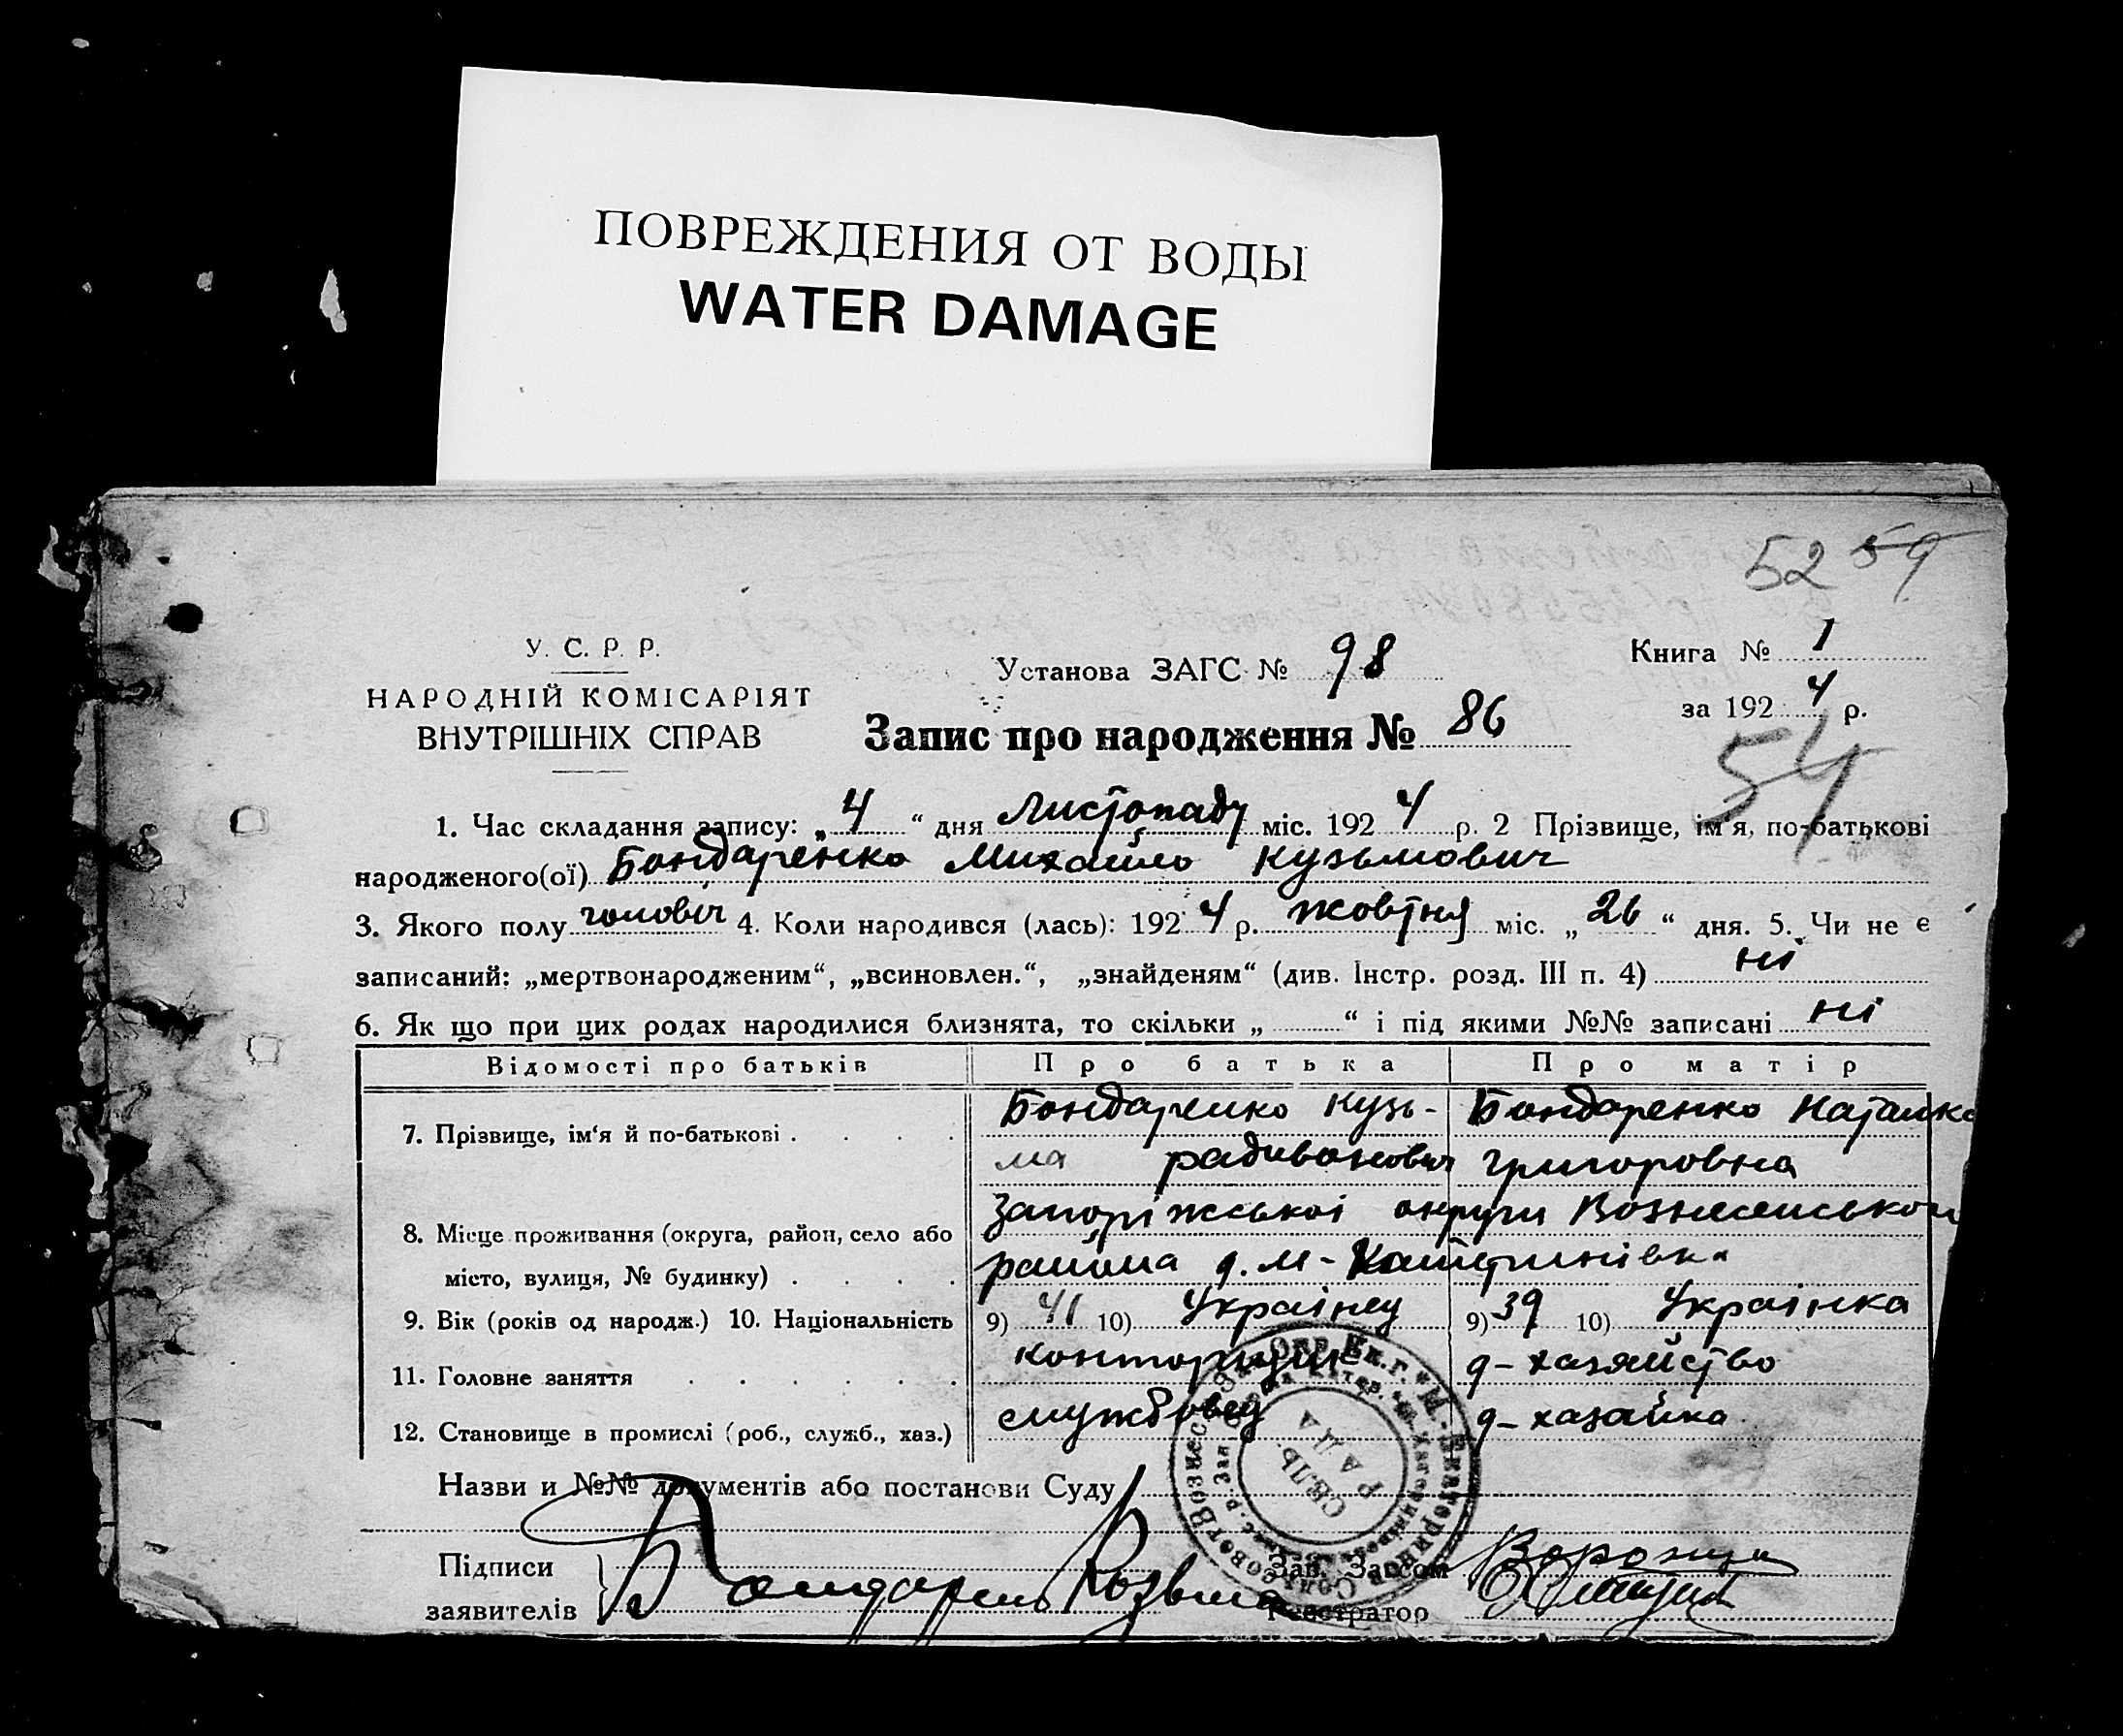 ПОВРЕЖДЕНИЯ ОТ ВОДЫ
WATER DAMAGE
52 59
У. С. Р. Р.
НАРОДНІЙ КОМІСАРІЯТ
ВНУТРІШНІХ СПРАВ
Установа ЗАГС № 98
Книга № 1
за 1924 р.
Запис про народження № 86
54
1. Час складання запису: „4“ дня Листопаду міс. 1924 р. 2 Прізвище, ім'я, по-батькові
народженого(ої) Бондаренко Михайло Кузьмович
3. Якого полу чоловіч 4. Коли народився (лась): 1924 р. жовтня міс. „26“ дня. 5. Чи не є
записаний: „мертвонародженим“, „всиновлен.“, „знайденям“ (див. Інстр. розд. III п. 4) ні
6. Як що при цих родах народилися близнята, то скільки „ “ і під якими №№ записані ні
Відомості про батьків Про батька Про матір
7. Прізвище, ім'я й по-батькові . . . . Бондаренко Кузь- Бондаренко Наталка
ма радивонович григоровна
8. Місце проживання (округа, район, село або Запоріжської округи Вознесенського
місто, вулиця, № будинку) . . . . района
9. Вік (років од народж.) 10. Національність 9) 41 10) Українец 9) 39 10) Українка
11. Головне заняття . . . . . . конторщик д-хазяйство
12. Становище в промислі (роб., служб., хаз.) службовец д-хазайка
Назви и №№ документів або постанови Суду
СЕЛЬ.
РАДА
Підписи
заявителів
Бондаренко Козьма
Зав. Загсом
Реєстратор